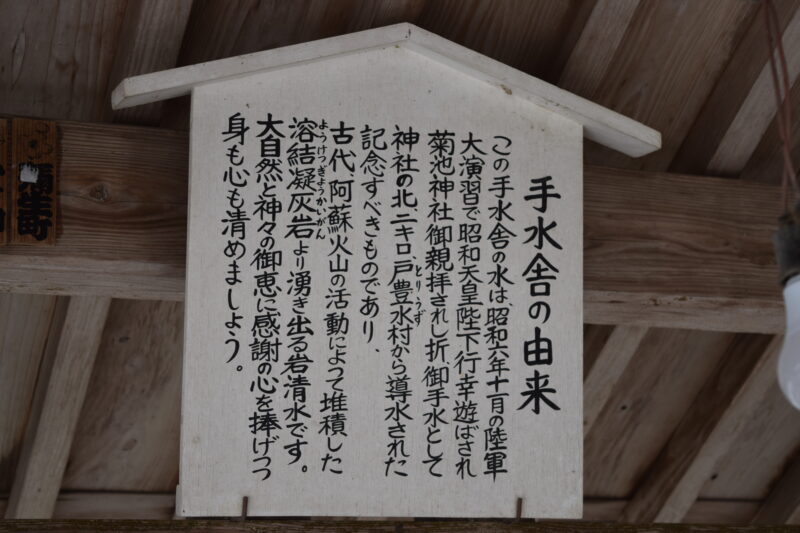 手水舎の由来
この手水舎の水は、昭和六年十一月の陸軍
大演習で昭和天皇陛下行幸遊ばされ
菊池神社御親拝されし折御手水として
神社の北二キロ、戸豊水村から導水された
とりうず
記念すべきものであり、
古代、阿蘇火山の活動によって堆積した
ようけつぎょうかいがん
溶結凝灰岩より湧き出る岩清水です。
大自然と神々の御恵に感謝の心を捧げつつ
身も心も清めましょう。
弥生町